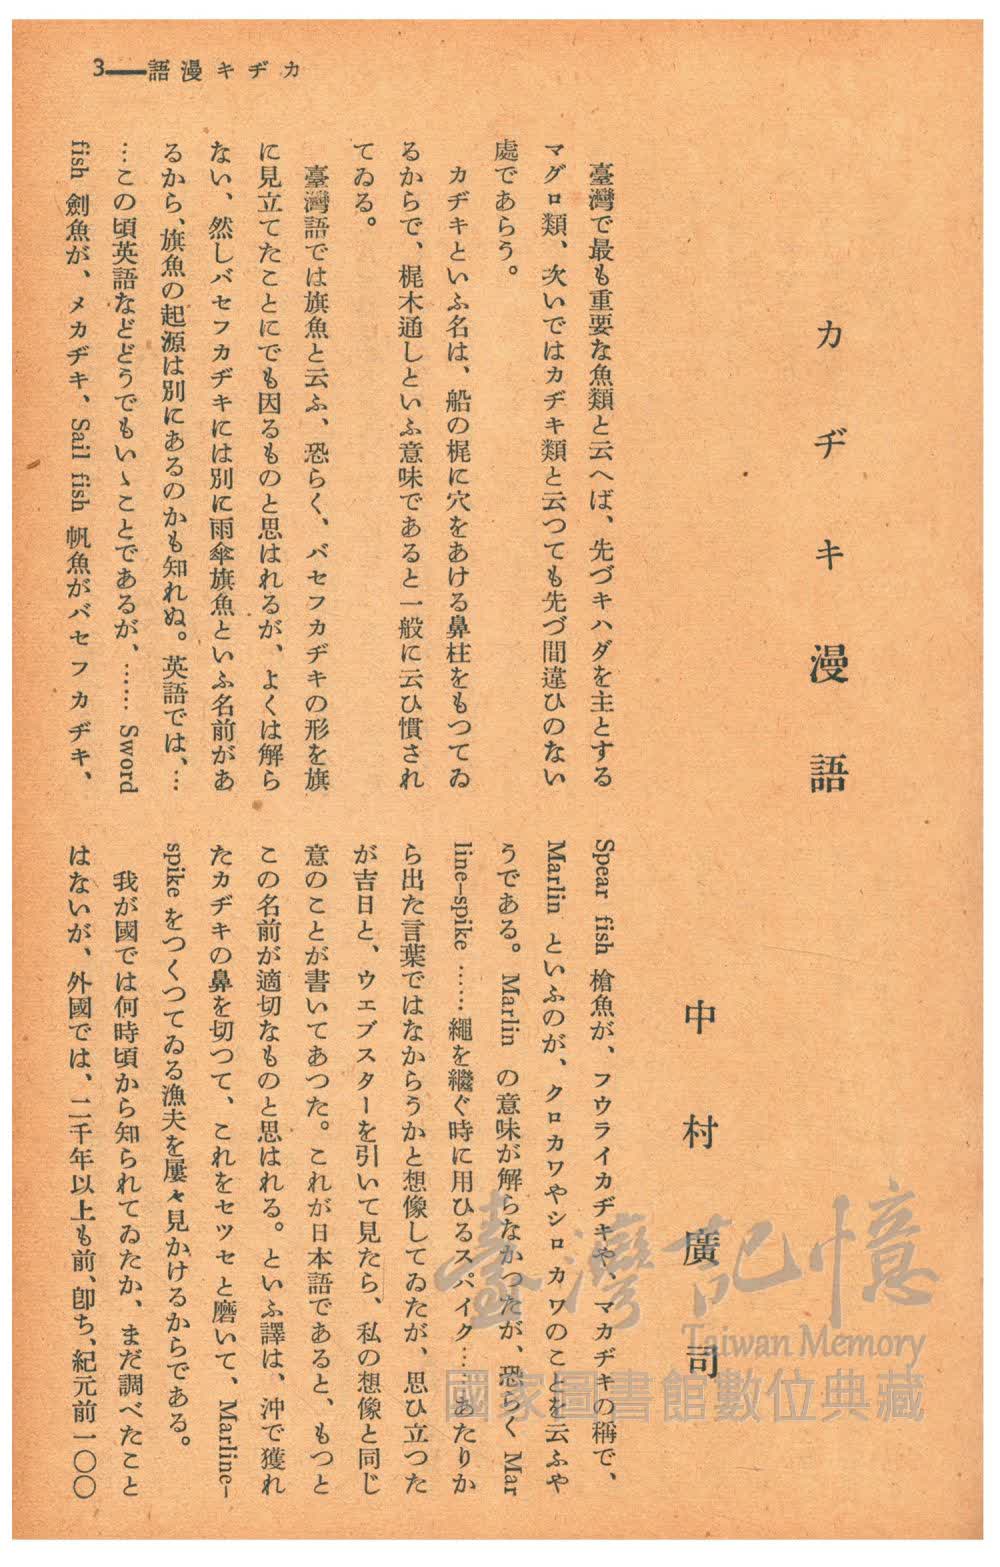 カヂキ漫語――3
カヂキ漫語
中村廣司
臺灣で最も重要な魚類と云へば、先づキハダを主とする
マグロ類、次いではカヂキ類と云つても先づ間違ひのない
處であらう。
カヂキといふ名は、船の梶に穴をあける鼻柱をもつてゐ
るからで、梶木通しといふ意味であると一般に云ひ慣され
てゐる。
臺灣語では旗魚と云ふ、恐らく、バセフカヂキの形を旗
に見立てたことにでも因るものと思はれるが、よくは解ら
ない、然しバセフカヂキには別に雨傘旗魚といふ名前があ
るから、旗魚の起源は別にあるのかも知れぬ。英語では、…
…この頃英語などどうでもいゝことであるが、…… Sword
fish 劍魚が、メカヂキ、Sail fish 帆魚がバセフカヂキ、
Spear fish 槍魚が、フウライカヂキや、マカヂキの稱で、
Marlin といふのが、クロカワやシロカワのことを云ふや
うである。Marlin の意味が解らなかつたが、恐らく Mar
line-spike ……繩を繼ぐ時に用ひるスパイク……あたりか
ら出た言葉ではなからうかと想像してゐたが、思ひ立つた
が吉日と、ウェブスターを引いて見たら、私の想像と同じ
意のことが書いてあつた。これが日本語であると、もつと
この名前が適切なものと思はれる。といふ譯は、沖で獲れ
たカヂキの鼻を切つて、これをセツセと磨いて、Marline-
spike をつくつてゐる漁夫を屢々見かけるからである。
我が國では何時頃から知られてゐたか、まだ調べたこと
はないが、外國では、二千年以上も前、卽ち、紀元前一〇〇
臺灣記憶
Taiwan Memory
國家圖書館數位典藏